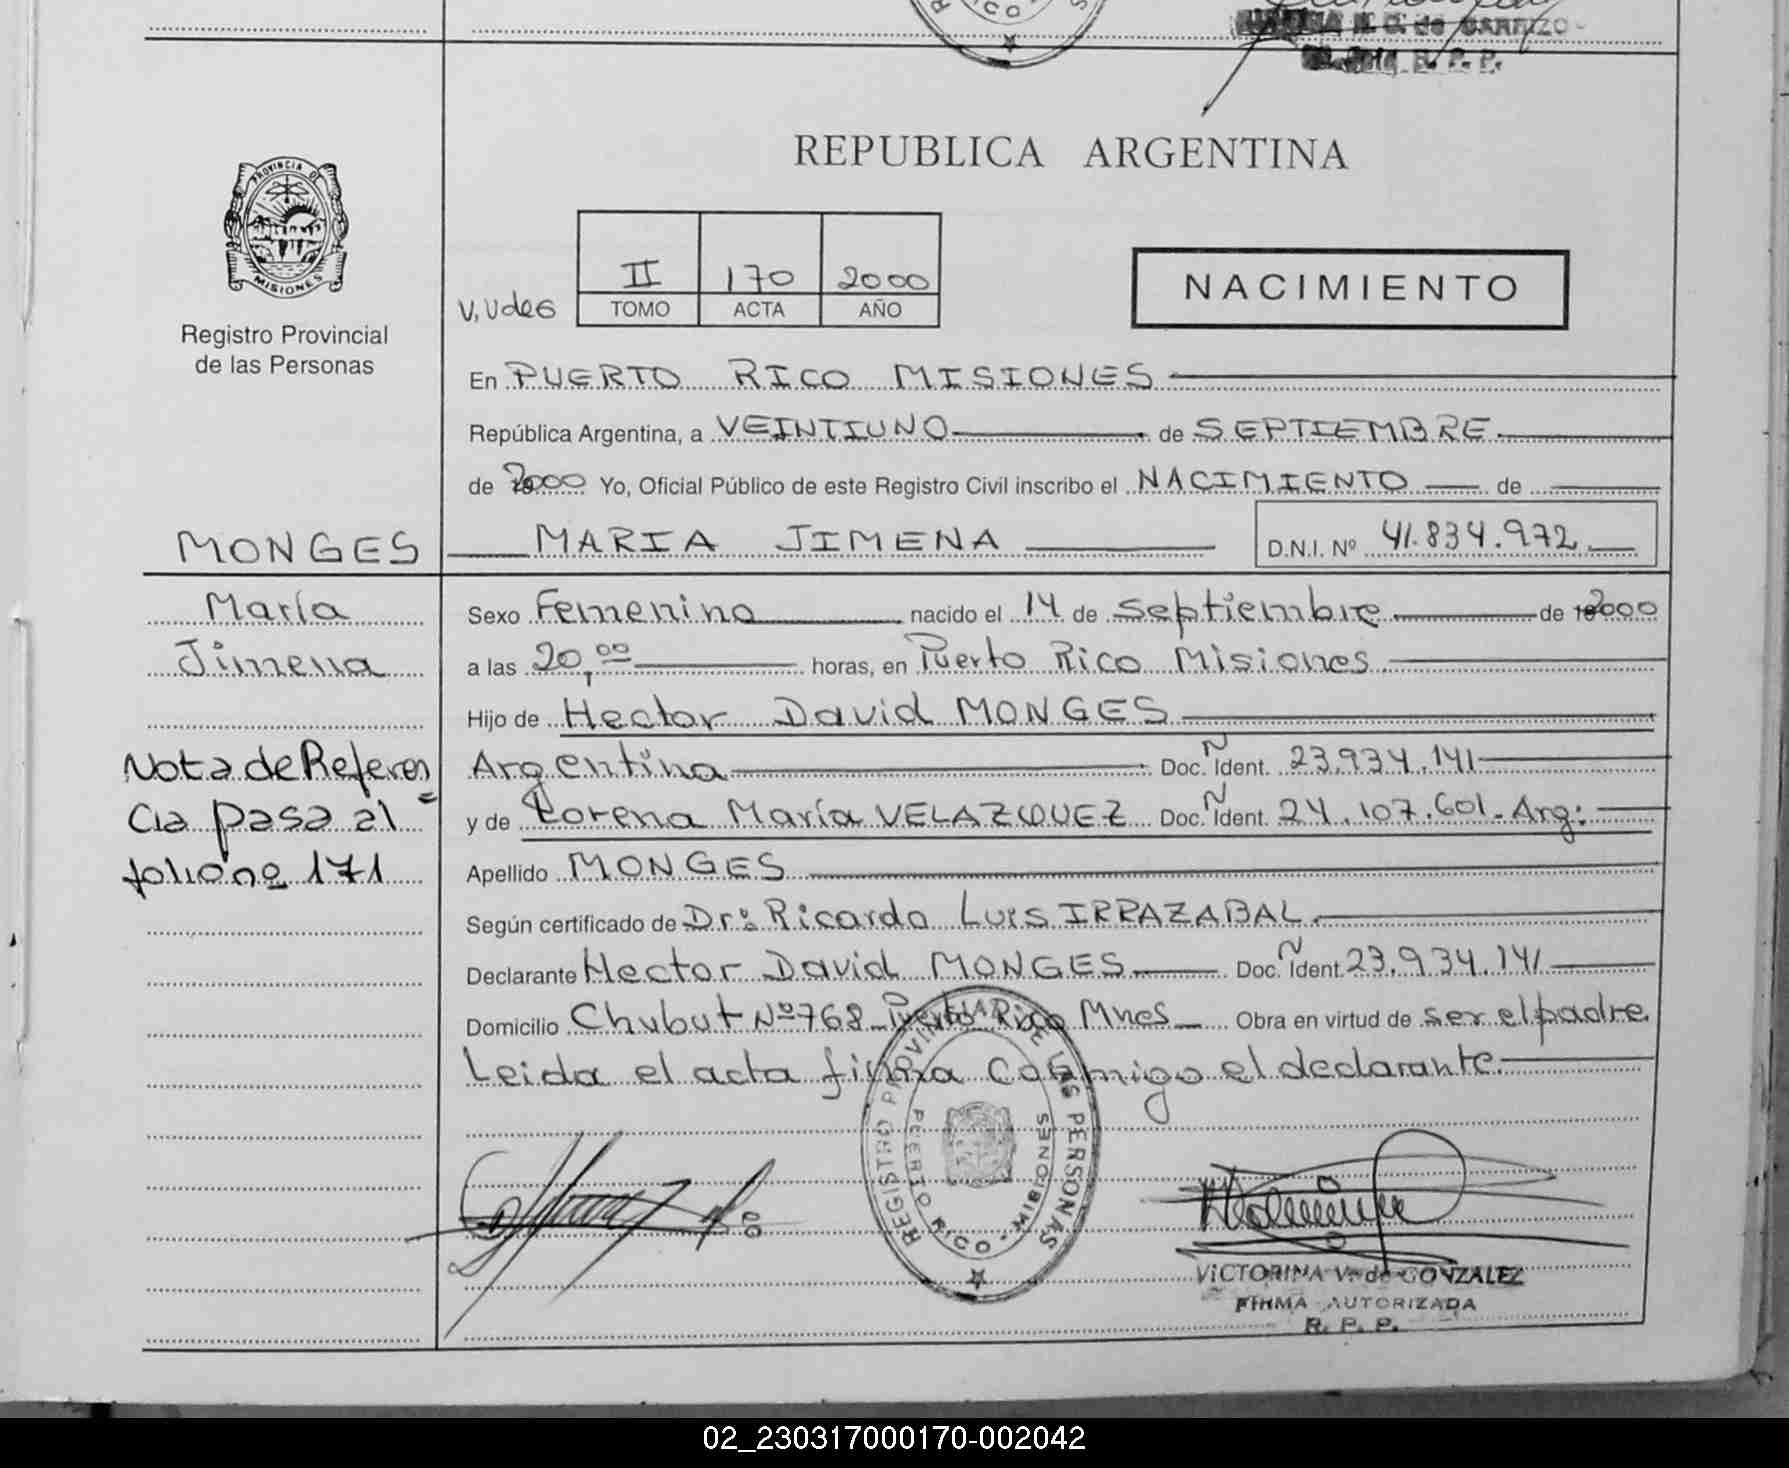 RICO
N. C. de CARRIZO
R. P. P.
REPUBLICA ARGENTINA
PROVINCIA DE
MISIONES
Registro Provincial
de las Personas
V, Vdeg
II 170 2000
TOMO ACTA AÑO
NACIMIENTO
En PUERTO RICO MISIONES
República Argentina, a VEINTIUNO de SEPTIEMBRE
de 2000 Yo, Oficial Público de este Registro Civil inscribo el NACIMIENTO de
MONGES
MARIA JIMENA D.N.I. Nº 41.834.972
María
Jimena
Sexo Femenino nacido el 14 de Septiembre de 2000
a las 20,00 horas, en Puerto Rico Misiones
Hijo de Hector David MONGES
Argentina Doc. Ident. 23.934.141
y de Lorena María VELAZQUEZ Doc. Ident. 24.107.601. Arg:
Nota de Referen
cia pasa al
folio nº 171
Apellido MONGES
Según certificado de Dr: Ricardo Luis IRRAZABAL
Declarante Hector David MONGES Doc. Ident. 23.934.141
Domicilio Chubut Nº 768 Puerto Rico Mnes Obra en virtud de ser el padre.
Leida el acta firma conmigo el declarante.
REGISTRO PROVINCIAL DE LAS PERSONAS
PUERTO RICO - MISIONES
VICTORINA V. de GONZALEZ
FIRMA AUTORIZADA
R. P. P.
02_230317000170-002042